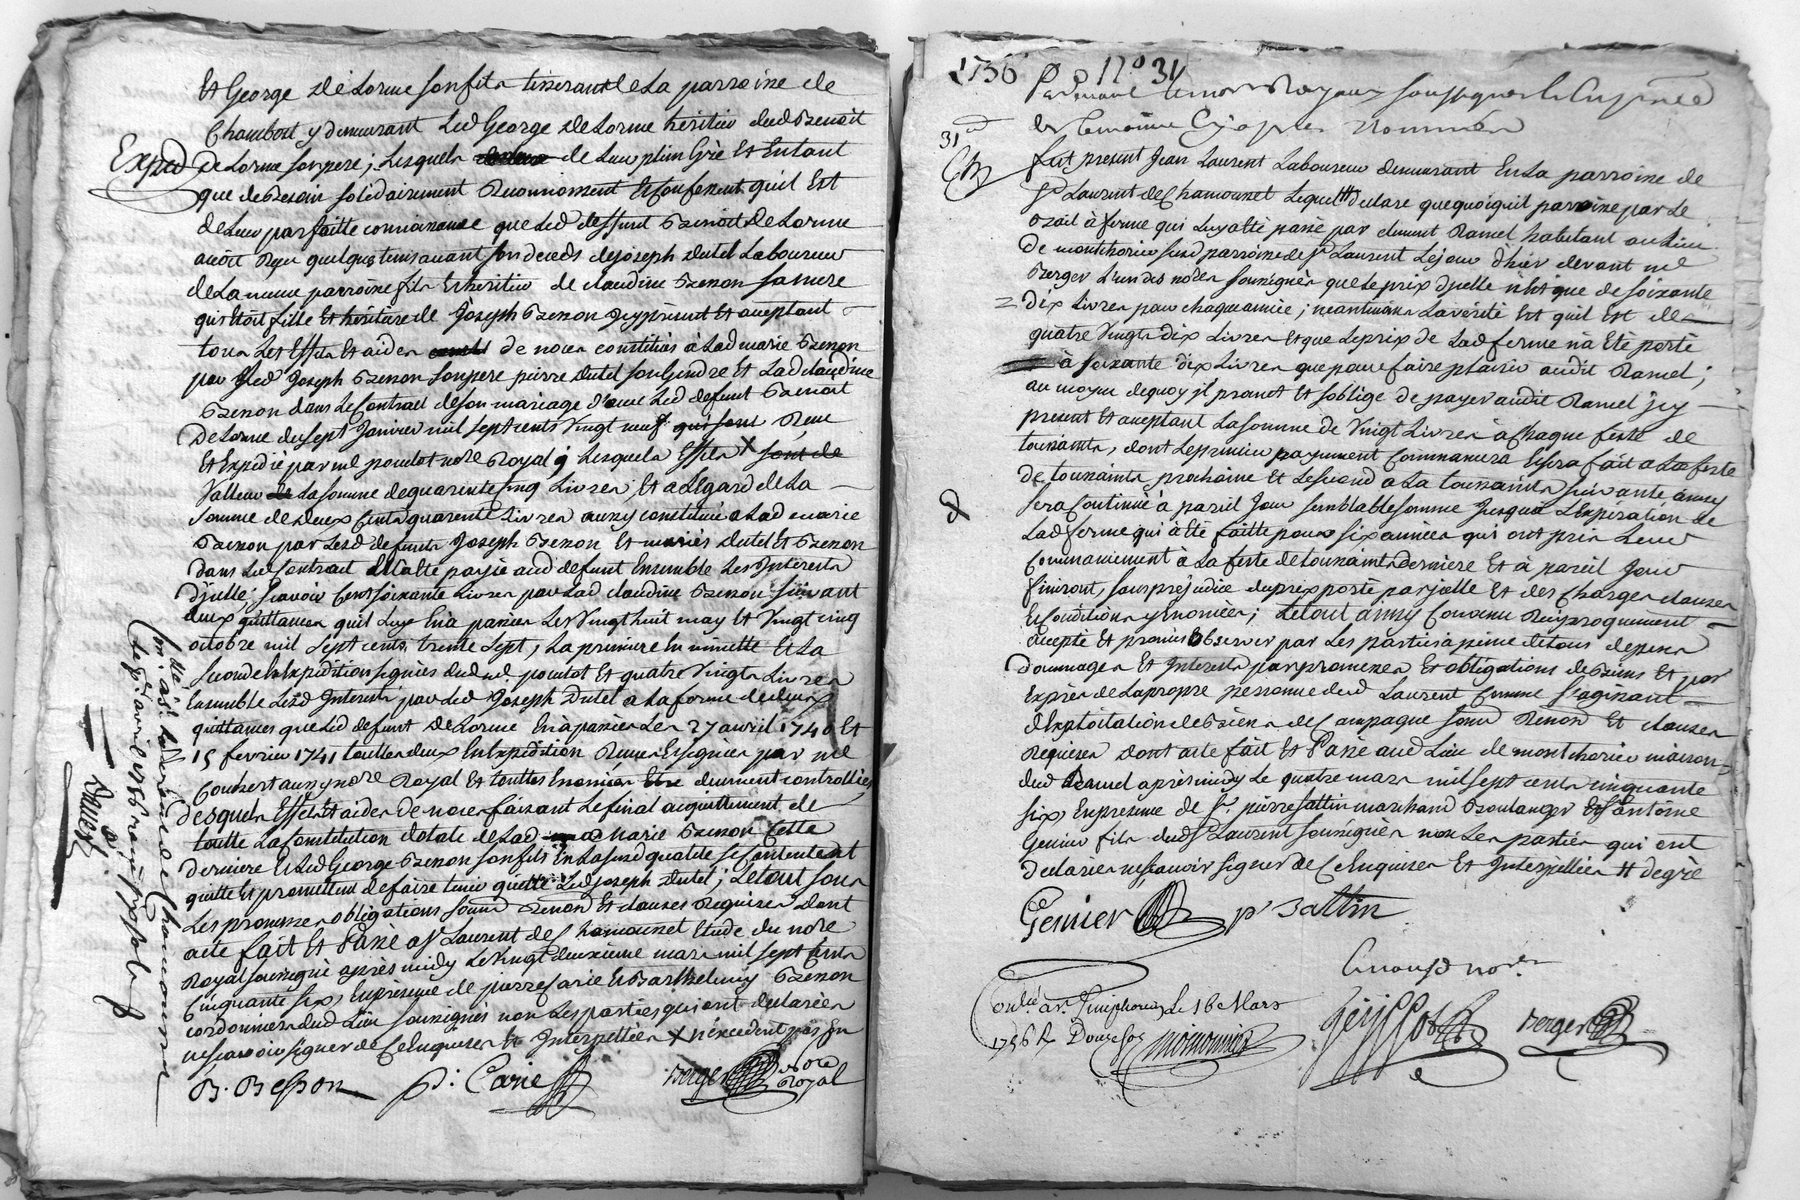 Et George deLorme son fils tisserant de La parroisse de
Chambost y demeurant Led George DeLorme heritier dud Benoit
Exped
De Lorme son pere; Lesquels de Leur plein Gré Et Entant
que de Besoin solidairement Reconnoissent Et confessent quil Est
de Leur parfaitte connoissance que Led deffunt Benoit De Lorme
avoit Reçu quelque tems avant son deceds de joseph Dutel Laboureur
de La meme parroisse fils Et heritier de claudine Besson sa mere
qui Etoit fille Et héritière de Joseph Besson Jcy présent Et aceptant
tous Les Effets Et aides de noces constitués à Lad marie Besson
par Led Joseph Besson son pere pierre Dutel son Gendre Et Lad claudine
Besson dans Le Contract de son mariage avec Led defunt Benoit
De Lorme du sept Janvier mil sept cents Vingt neuf Reçu
Et Expedié par me poudot nore Royal Lesquels Effets X sont de
Valleur La somme de quarente cinq Livres Et a Legard de La
somme de deux Cents quarente Livres aussy constituée a Lad marie
Besson par Lesd defunts Joseph Besson Et mariés Dutel Et Besson
dans Led Contract Elle a Eté payée aud defunt Ensemble Les Interests
d'jcelle; scavoir Cent soixante Livres par Lad claudine Besson suivant
deux quittances quil Luy En a passées Les Vingt huit may Et Vingt cinq
octobre mil sept cents trente sept, La premiere En minutte Et La
seconde En Expedition signées dud me poudot Et quatre Vingts Livres
Ensemble Lesd Interests par Led Joseph Dutel a La forme de deux
quittances que Led defunt De Lorme En a passées Les 27 avril 1740 Et
15 fevrier 1741 touttes deux En Expedition Reçues Et signées par me
aussy nore Royal Et touttes Enoncées duement controllées
desquels Effets Et aides de noces faisant Le final acquittement de
toutte La Constitution dotale de Lad marie Besson Cette
derniere Et Led George son fils En La susd qualité se contentent
quitte Et promettent de faire tenir quitte Led joseph Dutel; Le tout sous
Les promesses obligations soumd Renond Et clauses Requises Dont
acte fait Et Passé a St Laurent de Chamousset Etude du nore
Royal soussigné après midy Le vingt deuxieme mars mil sept Cents
Cinquante six, En présence de pierre Carie Et Barthelemy Besson
cordonniers dud Lieu soussignés non Les parties qui ont declarées
ne scavoir signer de Ce Enquises Et Interpellées X n'excedent pas En
B. Besson p: Carie Berger nore Royal
1756 N° 31
31
fut présent Jean Laurent Laboureur demeurant En La parroisse de
St Laurent de Chamousset Lequel declare que quoiquil paroisse par Le
Bail à ferme qui Luy a Eté passé par clement Ramel habitant au Lieu
De montchorier susd parroisse de St Laurent Le jour d'hier devant me
Berger L'un des nores soussignés que Le prix d'jcelle n'est que de soixante
Dix Livres pour chaque année; neantmoins La verité Est quil Est de
quatre Vingts dix Livres Et que Le prix de Lad ferme n'a Eté porté
à soixante dix Livres que pour faire plaisir audit Ramel;
au moyen de quoy jl promet Et soblige de payer audit Ramel jcy
présent Et aceptant La somme de Vingt Livres à chaque feste de
toussaints, dont Le premier payement Commancera Et sera fait a La feste
de toussaints prochaine Et Le second a La toussaints suivante ainsy
sera Continué à pareil Jour semblable somme Jusqua LExpiration de
Lad ferme qui a Eté faitte pour six années qui ont pris Leur
Commancement à La feste de toussaints derniere Et a pareil Jour
finiront, sans préjudice du prix porté par jcelle Et des Charges clauses
Et Conditions y Enoncées; Le tout ainsy Convenu Reciproquement
accepté Et promis observer par Les parties à peine de tous depens
dommages Et Interests par promesses Et obligations de Biens Et par
Exprès de La propre personne dud Laurent Comme sagissant
d'Exploitation de Biens de Campagne soumd Renond Et clauses
Requises Dont acte fait Et Passé aud Lieu de montchorier maison
dud Ramel après midy Le quatre mars mil sept cents cinquante
six, En présence de Sr pierre fattin marchand Boulanger Et Sr antoine
Genier fils dud St Laurent soussignés non Les parties qui ont
declarées ne scavoir signer de Ce Enquises Et Interpellées # de gré
Genier p' Battin
Conlé a St Simphorien Le 16 Mars
1756 R Douze sos
Berger